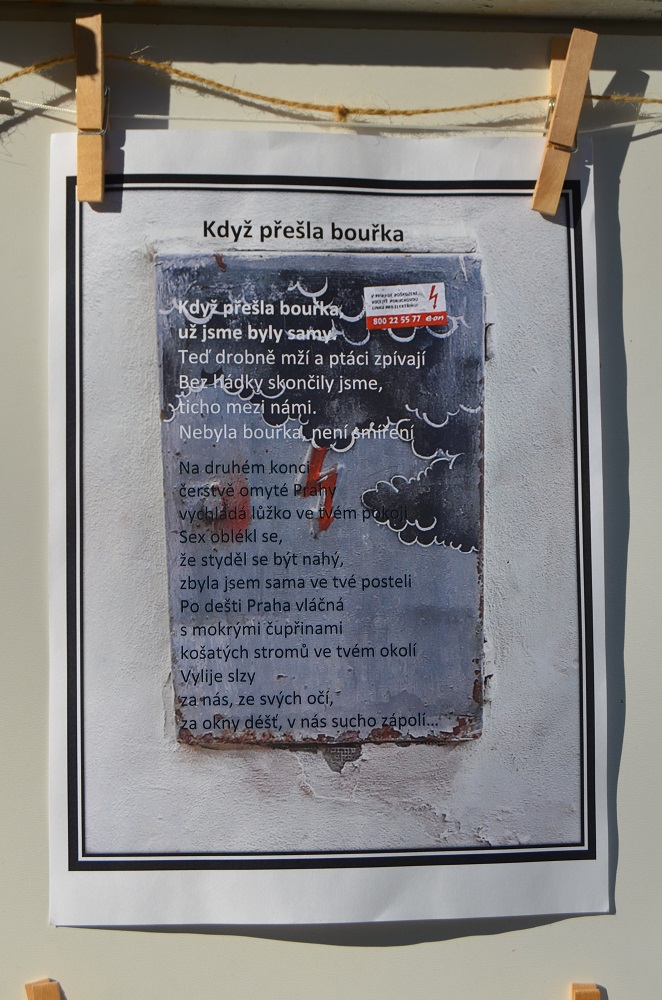 Když přešla bouřka
V PŘÍPADĚ POŠKOZENÍ
VOLEJTE PORUCHOVOU
LINKU PRO ELEKTŘINU
800 22 55 77 e·on
Když přešla bouřka,
už jsme byly samy.
Teď drobně mží a ptáci zpívají
Bez hádky skončily jsme,
ticho mezi námi.
Nebyla bouřka, není smíření
Na druhém konci
čerstvě omyté Prahy
vychládá lůžko ve tvém pokoji
Sex oblékl se,
že styděl se být nahý,
zbyla jsem sama ve tvé posteli
Po dešti Praha vláčná
s mokrými čupřinami
košatých stromů ve tvém okolí
Vylije slzy
za nás, ze svých očí,
za okny déšť, v nás sucho zápolí...